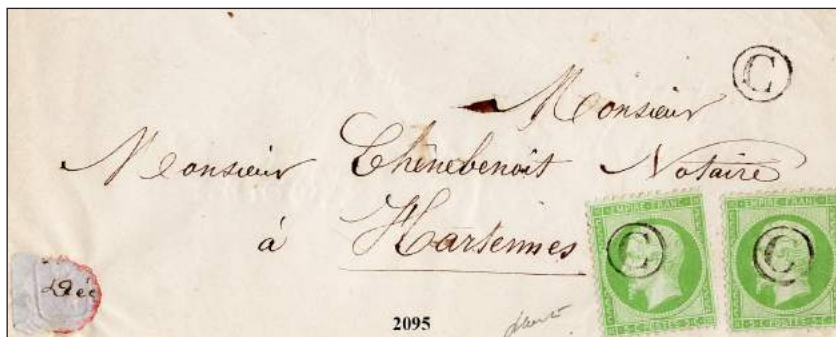 C
Monsieur
Monsieur Chênebenoit Notaire
à Harsennes
EMPIRE FRANC
C
5 C POSTES 5 C
EMPIRE FRANC
C
5 C POSTES 5 C
2095